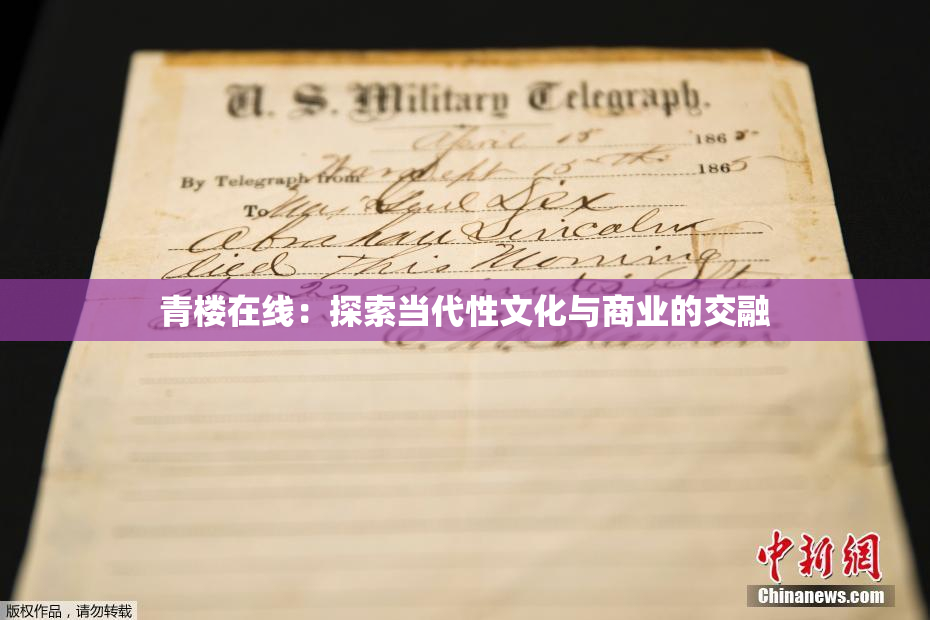 U. S. Military Telegraph.
April 15 1865
By Telegraph from War Dept 15th 1865
To Maj Genl Dix
Abraham Lincoln
died This Morning
at 22 minutes after
青楼在线：探索当代性文化与商业的交融
中新网
Chinanews.com
版权作品，请勿转载